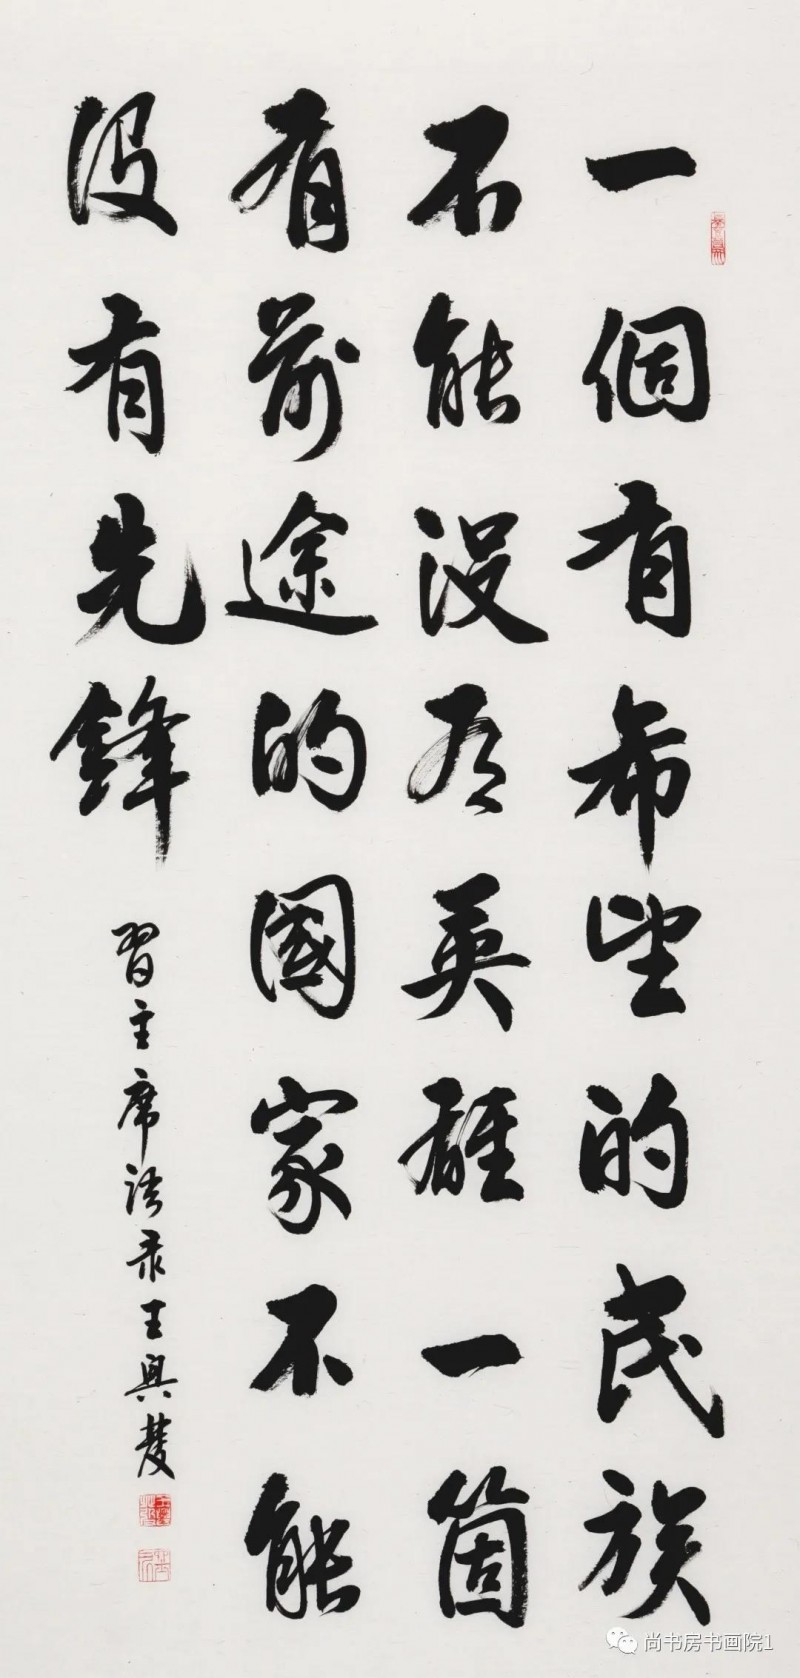 一個有希望的民族
不能没有英雄一箇
有前途的國家不能
没有先鋒
習主席语录王興
尚书房书画院1